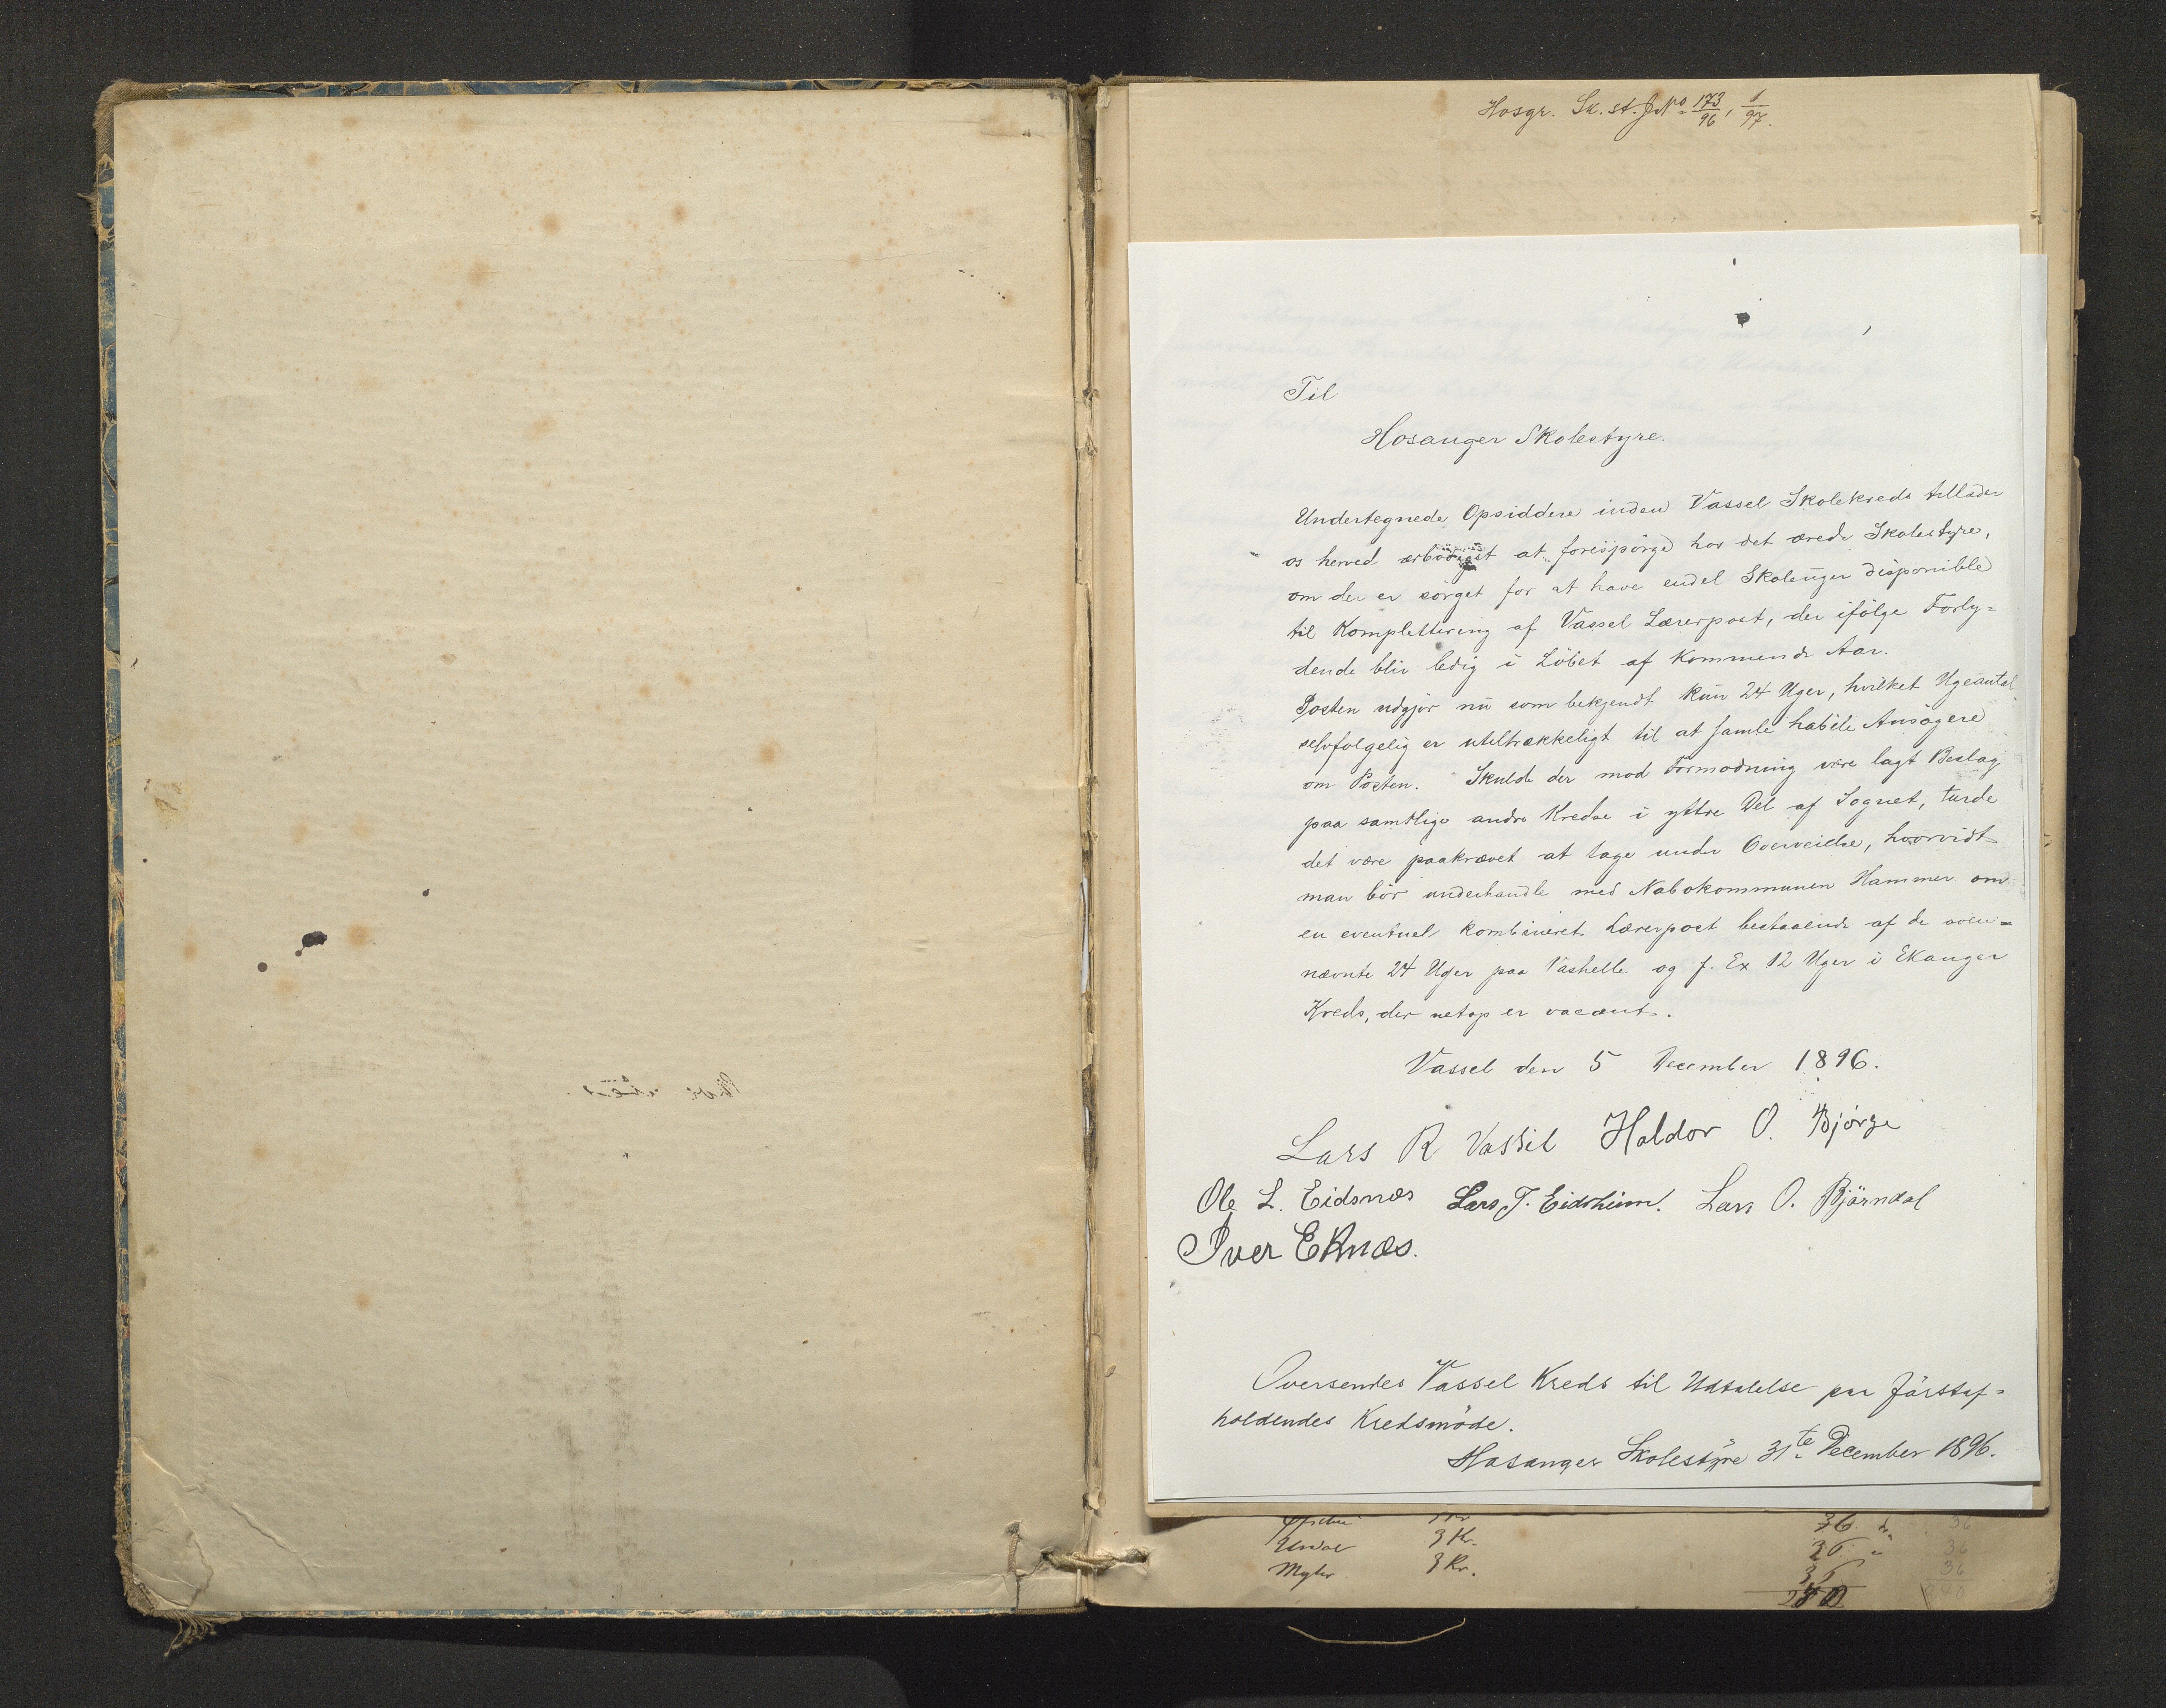 Hosgr. Sk. st. J No 173/96, 1/97.
Til
Hosanger Skolestyre.
Undertegnede Opsiddere inden Vassel Skolekreds tillader
os herved ærbödigst at forespörge hos det ærede Skolestyre,
om der er sörget for at have endel Skoleuger disponible
til Komplettering af Vassel Lærerpost, der ifölge Forly=
dende blir ledig i Löbet af Kommende Aar.
Posten udgjør nu som bekjendt kun 24 Uger, hvilket Ugeantal
selvfolgelig er utiltrækkeligt til at samle habile Ansögere
om Posten. Skulde der mod Formodning være lagt Beslag
paa samtlige andre Kredse i yttre Del af Sognet, turde
det være paakrævet at tage under Overveielse, hvorvidt
man bör underhandle med Nabokommunen Hammer om
en eventuel kombineret Lærerpost bestaaende af de oven=
nævnte 24 Uger paa Vashelle og f. Ex 12 Uger i Ekanger
Kreds, der netop er vacant.
Vassel den 5 December 1896.
Lars R Vassel Haldor O. Bjørge
Ole L. Eidsnæs Lars T. Eidsheim. Lars O. Bjørndal
Iver Eknæs.
Oversendes Vassel Kreds til Udtalelse paa förstaf=
holdendes Kredsmöde.
Hosanger Skolestyre 31te December 1896.
36
3 Kr. 36
Mykr 3 Kr. 36